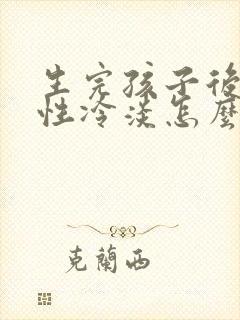 生完孩子後
性冷淡怎麼
克蘭西